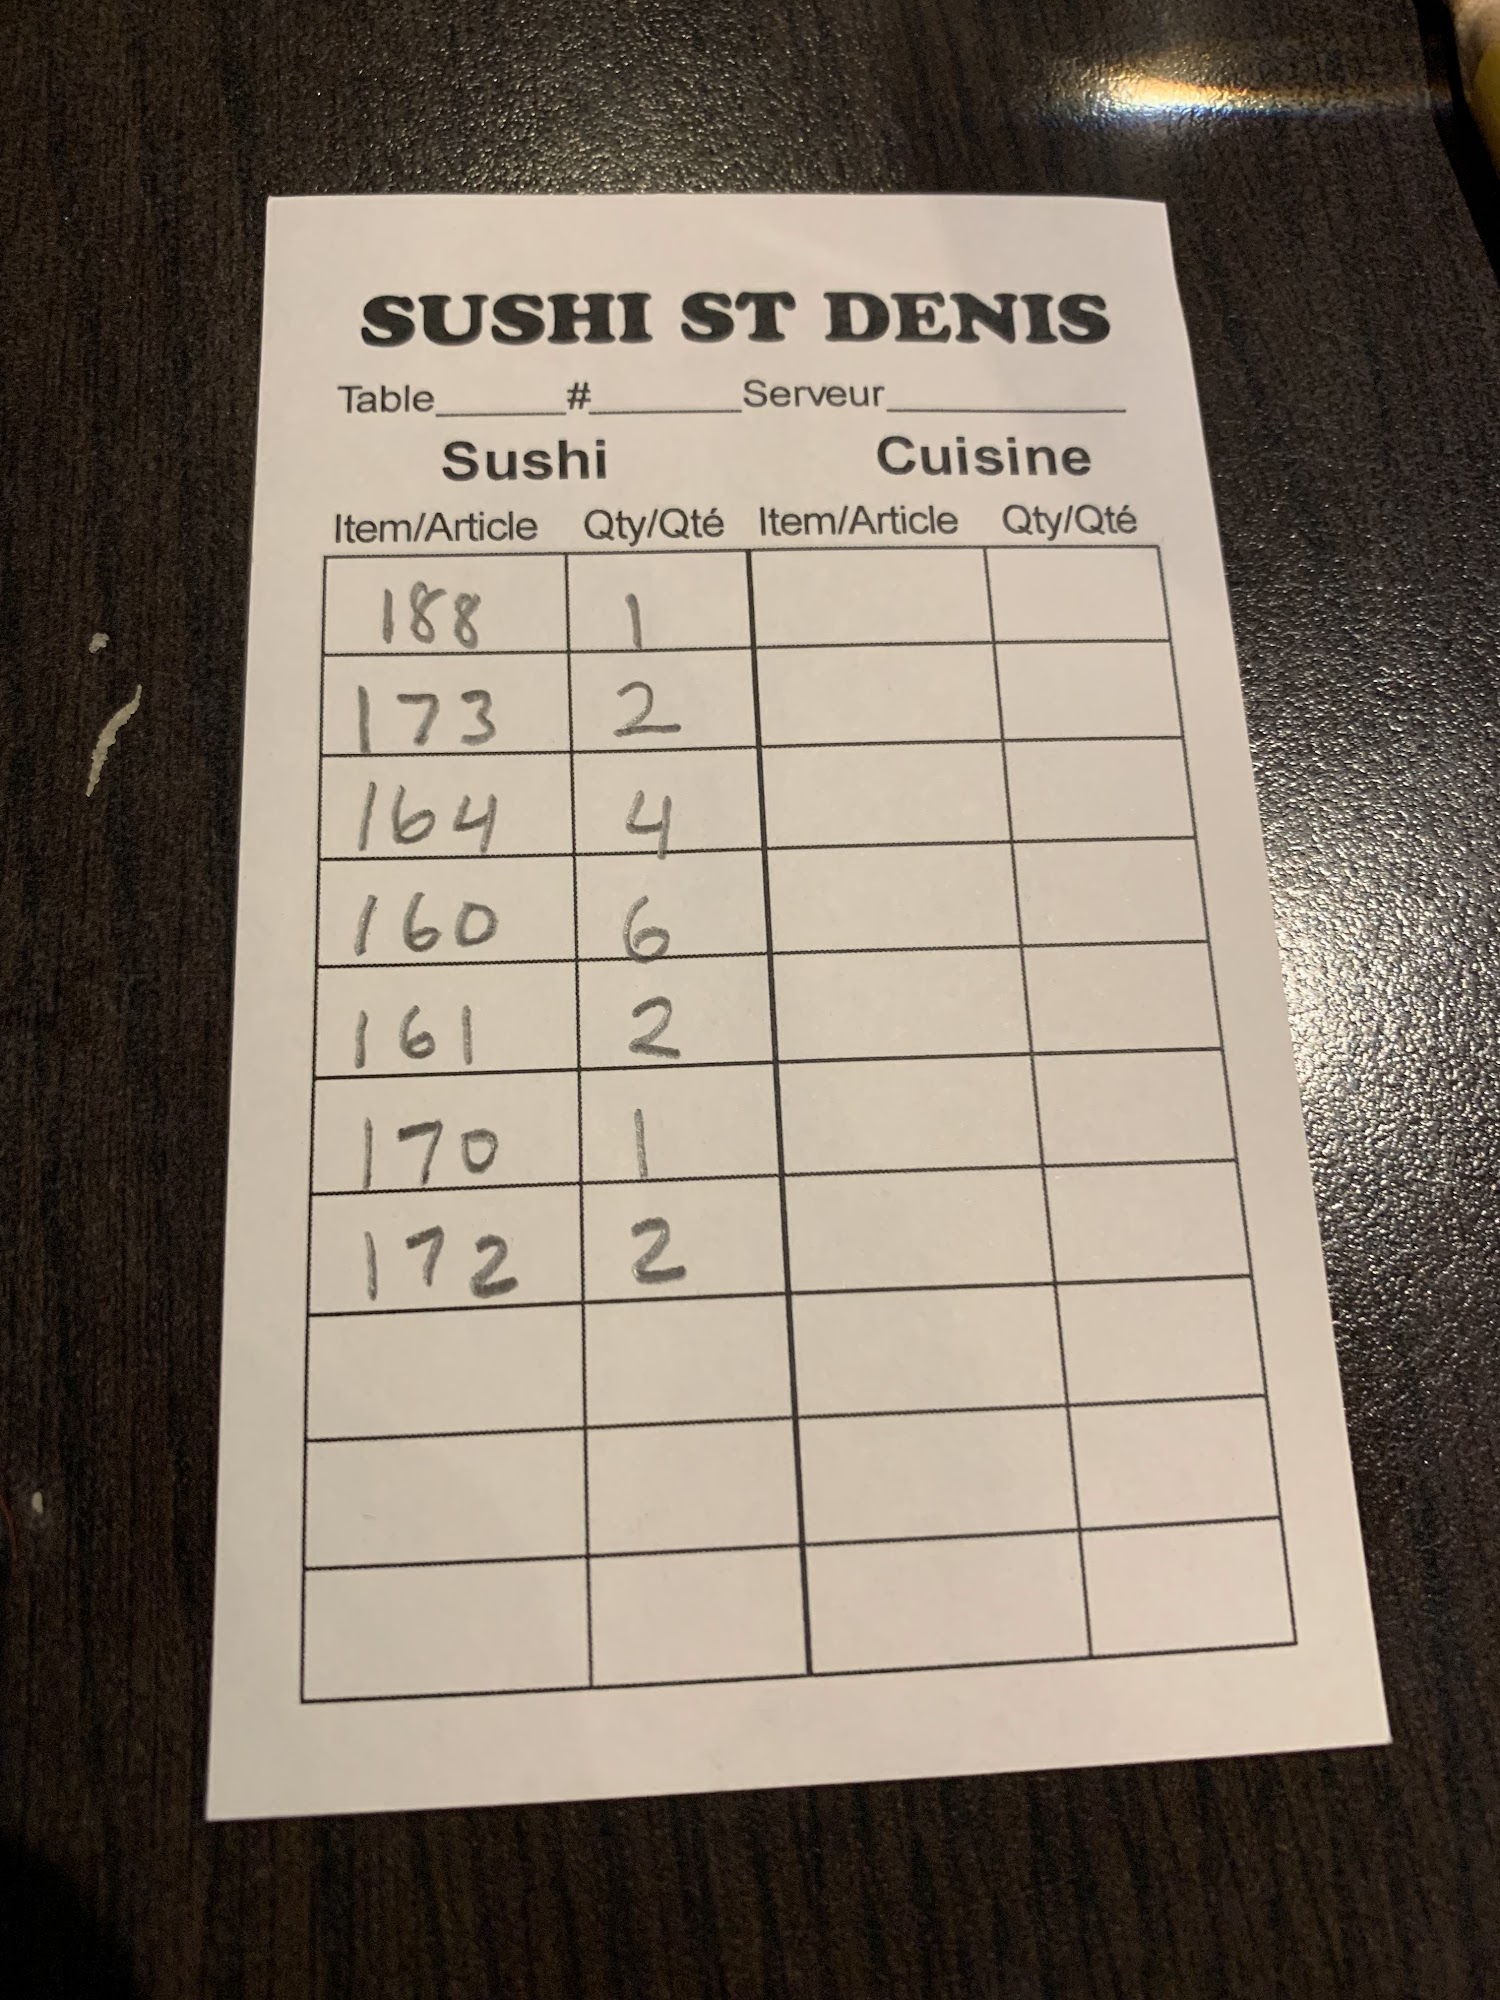 SUSHI ST DENIS
Table______#_______Serveur___________
Sushi Cuisine
Item/Article Qty/Qté Item/Article Qty/Qté
188 1
173 2
164 4
160 6
161 2
170 1
172 2